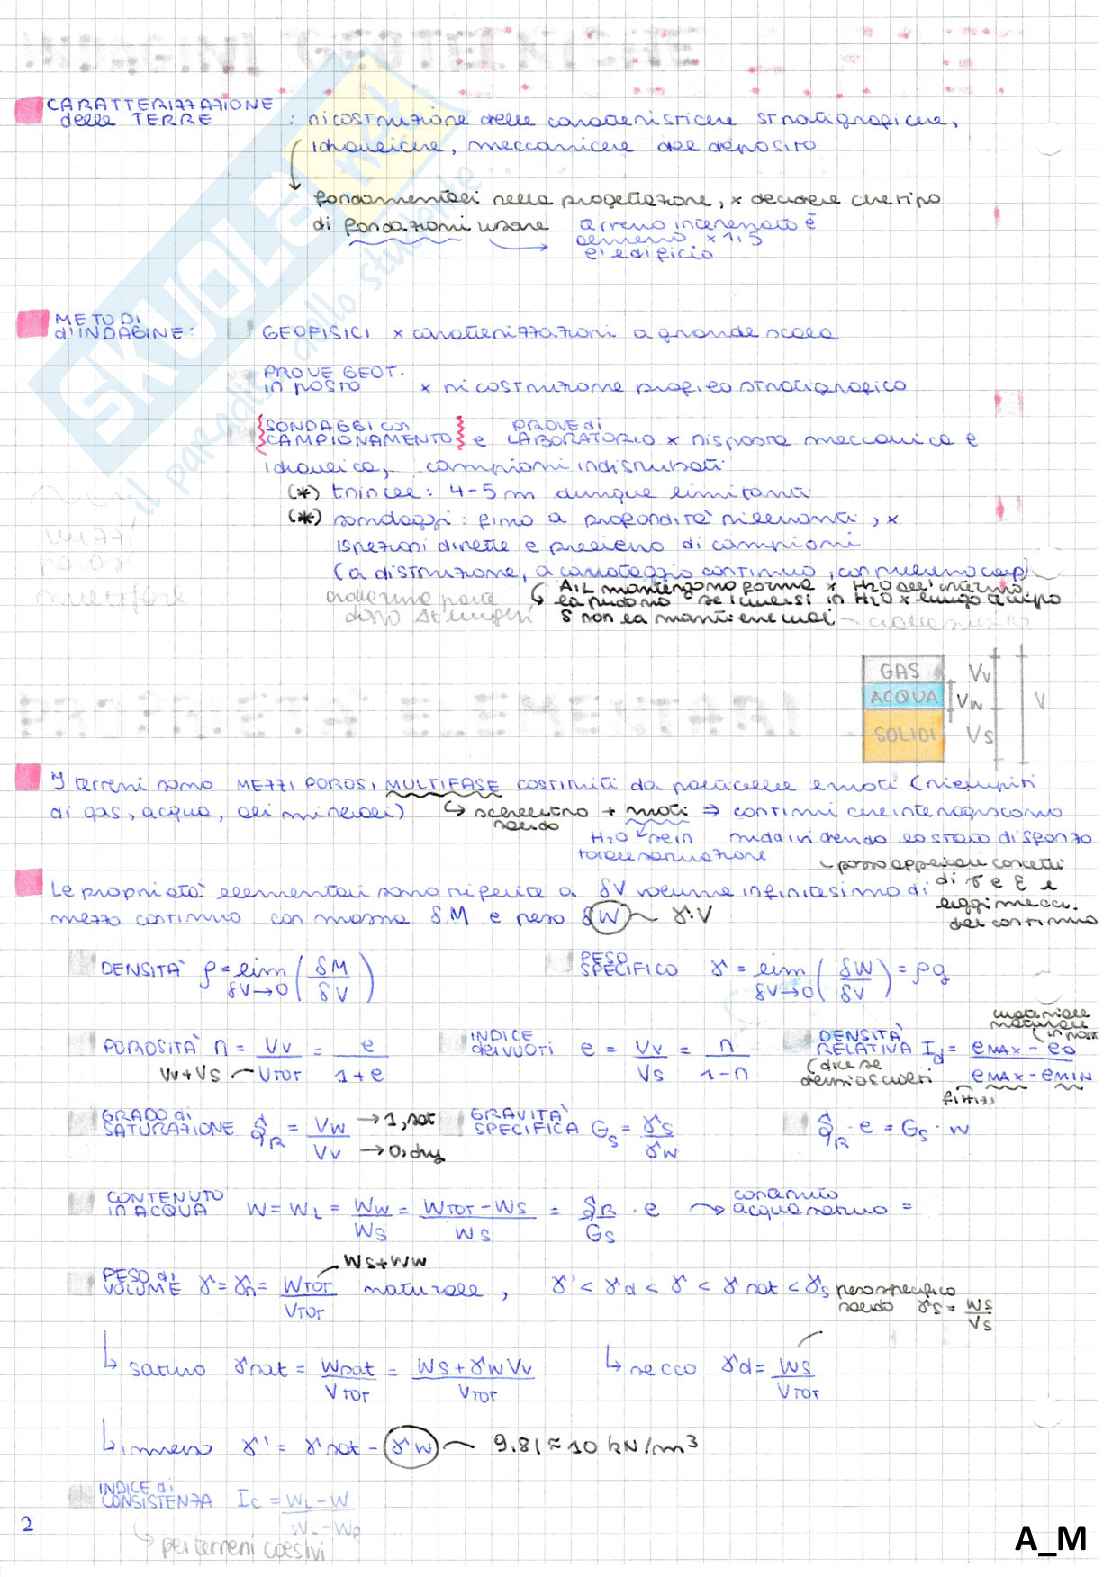 CARATTERIZZAZIONE
delle TERRE : ricostruzione delle caratteristiche stratigrafiche,
idrauliche, meccaniche del deposito
fondamentali nella progettazione, x decidere che tipo
di fondazioni usare
terreno interessato è
almeno x 1,5
l'edificio
METODI
d'INDAGINE: GEOFISICI x caratterizzazioni a grande scala
PROVE GEOT.
in posto x ricostruzione profilo stratigrafico
SONDAGGI con CAMPIONAMENTO e PROVE di LABORATORIO x risposta meccanica e
idraulica, campioni indisturbati
(*) trincee: 4-5 m dunque limitanti
(*) sondaggi: fino a profondità rilevanti, x
ispezioni dirette e prelievo di campioni
(a distruzione, a carotaggio continuo, con prelievo camp)
A, L mantengono forma x H2O all'interno
la perdono se immersi in H2O x lungo tempo
S non la mantiene mai
PROPRIETÀ ELEMENTARI
GAS
ACQUA
SOLIDI
Vv
Vw
Vs
V
I terreni sono MEZZI POROSI MULTIFASE costituiti da particelle e vuoti (riempiti
di gas, acqua, oli minerali) ↳ scheletro solido + vuoti ⇒ continui che interagiscono
H2O se in totale saturazione
suddividendo lo stato di sforzo
posso applicare concetti
di σ e ε e
leggi mecc.
del continuo
Le proprietà elementari sono riferite a δV volume infinitesimo di
mezzo continuo con massa δM e peso δW ~ γ·V
DENSITÀ ρ = lim δV→0 (δM/δV)
PESO SPECIFICO γ = lim δV→0 (δW/δV) = ρg
POROSITÀ n = Vv/VTOT = e/1+e
Vv+Vs
INDICE dei VUOTI e = Vv/Vs = n/1-n
DENSITÀ RELATIVA Id = eMAX - e0 / eMAX - eMIN
naturale
in posto
(dice se
densi o sciolti
fittizi
GRADO di SATURAZIONE SR = Vw/Vv → 1, sat → 0, dry
GRAVITÀ SPECIFICA Gs = γs/γw
SR · e = Gs · w
CONTENUTO in ACQUA W = WL = Ww/Ws = WTOT - Ws/Ws = SR/Gs · e
contenuto
acqua saturo =
PESO di VOLUME γ = γn = WTOT/VTOT naturale, γ' < γd < γ < γsat < γs
Ws+Ww
peso specifico
solido γs = Ws/Vs
↳ saturo γsat = Wsat/VTOT = Ws + γw Vv/VTOT
↳ secco γd = Ws/VTOT
↳ immerso γ' = γsat - γw ~ 9.81 ≈ 10 kN/m³
INDICE di CONSISTENZA Ic = WL - W/WL - WP
↳ per terreni coesivi
2
A_M
SKUOLA
il paradiso dello studente